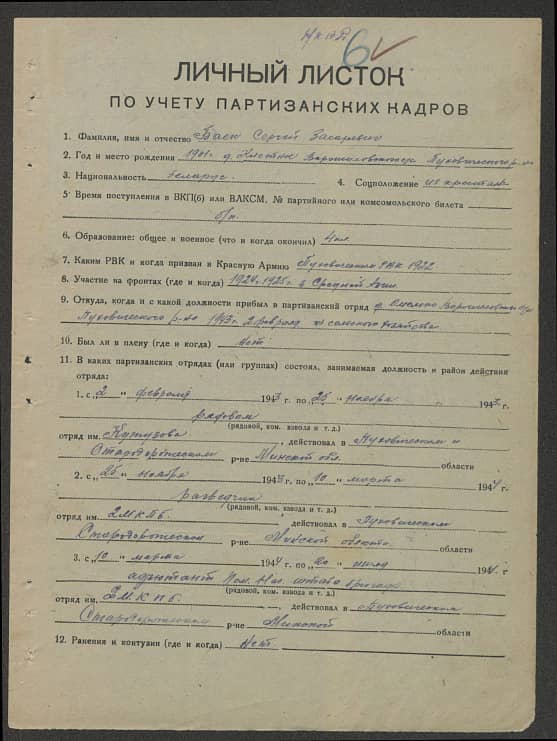 6
ЛИЧНЫЙ ЛИСТОК
ПО УЧЕТУ ПАРТИЗАНСКИХ КАДРОВ
1. Фамилия, имя и отчество Сергей
2. Год и место рождения 1901 г. д. Пуховичского р-на
3. Национальность беларус. 4. Соцположение из крестьян
5. Время поступления в ВКП(б) или ВЛКСМ, № партийного или комсомольского билета
б/п.
6. Образование: общее и военное (что и когда окончил) 4 кл.
7. Каким РВК и когда призван в Красную Армию Пуховичским РВК 1922
8. Участие на фронтах (где и когда) 1924-1925 г. в Средней Азии.
9. Откуда, когда и с какой должности прибыл в партизанский отряд д.
Пуховичского р-на 1943 г. 2 февраля из сельского хозяйства
10. Был ли в плену (где и когда) нет
11. В каких партизанских отрядах (или группах) состоял, занимаемая должность и район действия
отряда:
1. с „2 " февраля 1943 г. по 25 " ноября 1943 г.
рядовой
(рядовой, ком. взвода и т. д.)
отряд им. Кутузова, действовал в Пуховичском и
Стародорожском р-не Минской обл. области
2. с „25 " ноября 1943 г. по „10 " марта 1944 г.
разведчик
(рядовой, ком. взвода и т. д.)
отряд им. 2МКПб. действовал в Пуховичском
Стародорожском р-не Минской области области
3. с „10 " марта 1944 г. по „20 " июля 1944 г
адъютант Пом. Нач. штаба бригады
(рядовой, ком. взвода и т. д.)
отряд им. 2МКПб. действовал в Пуховичском
Стародорожском р-не Минской области
12. Ранения и контузии (где и когда) Нет.